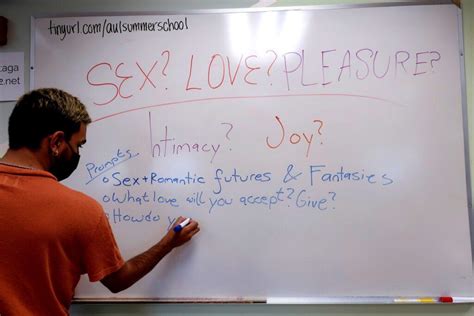 tinyurl.com/aulsummerschool
taga
e.net
SEX? LOVE? PLEASURE?
Intimacy? Joy?
Prompts
Sex+Romantic futures & Fantasies
What love will you accept? Give?
How do y